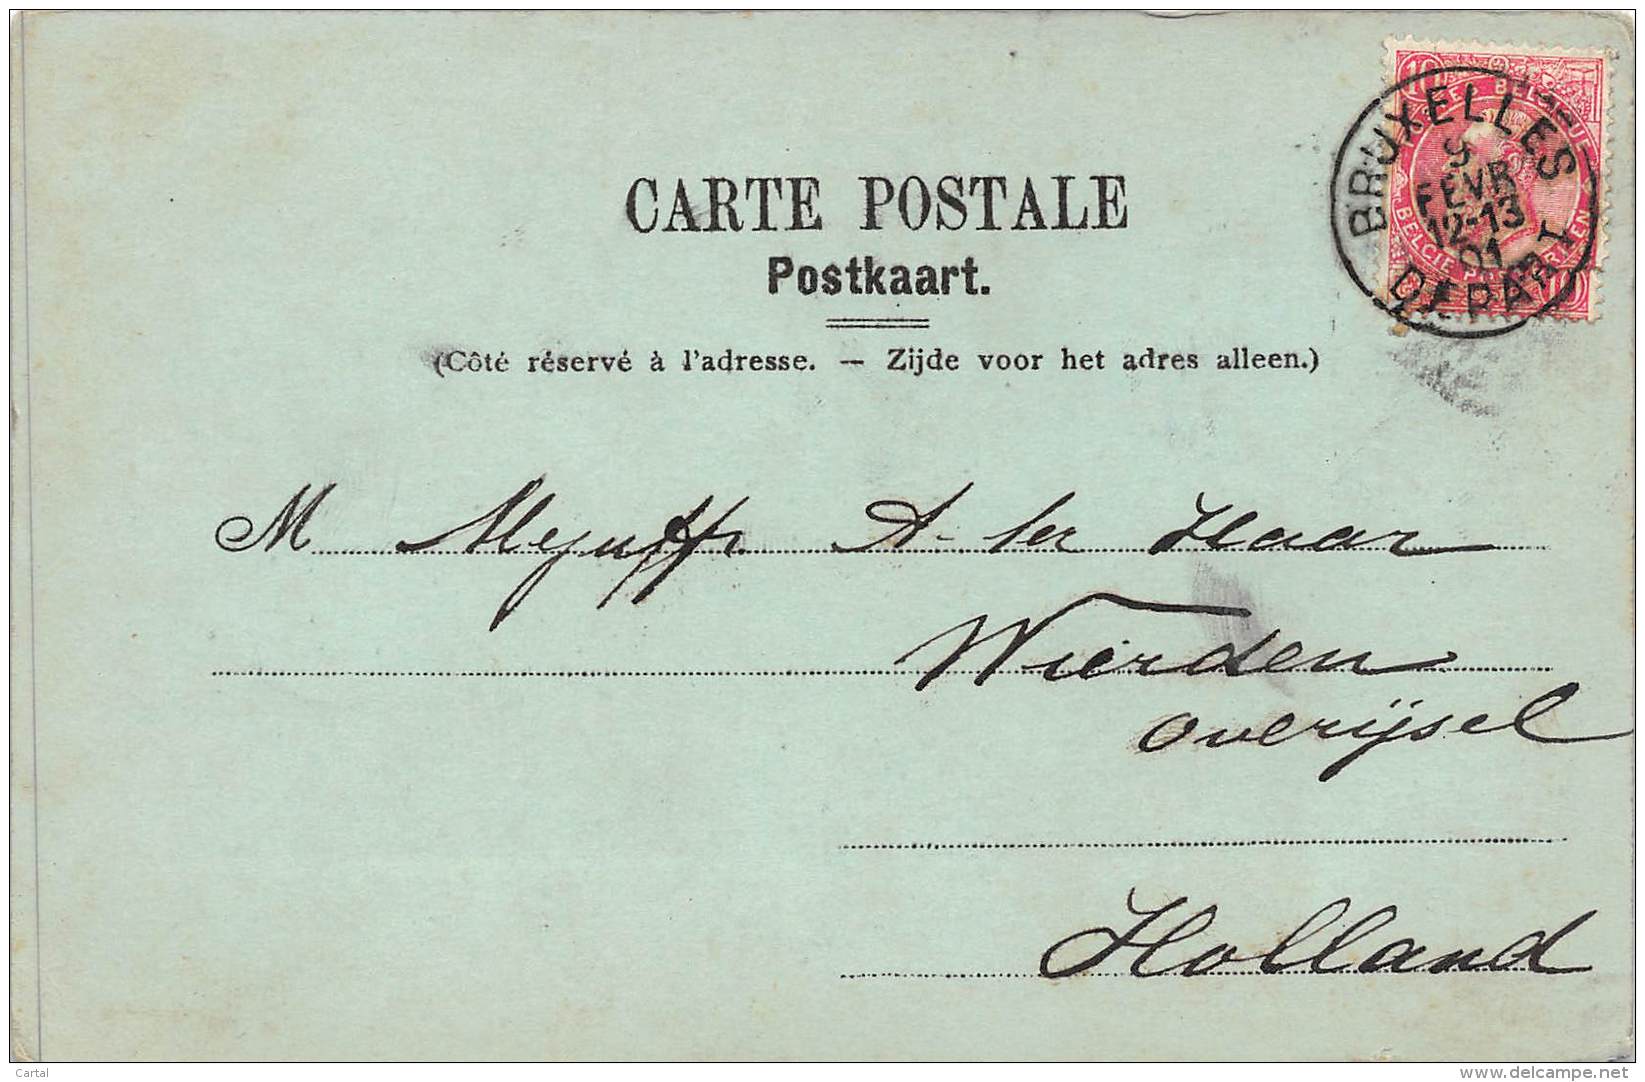 CARTE POSTALE
Postkaart.
(Côté réservé à l'adresse. — Zijde voor het adres alleen.)
10 10
BELGIQUE
BELGIE
10
BRUXELLES
9
FEVR
12-13
01
DEPART
M Mejuffr A. ter Haar
Wierden
Overijsel
Holland
Cartal
www.delcampe.net